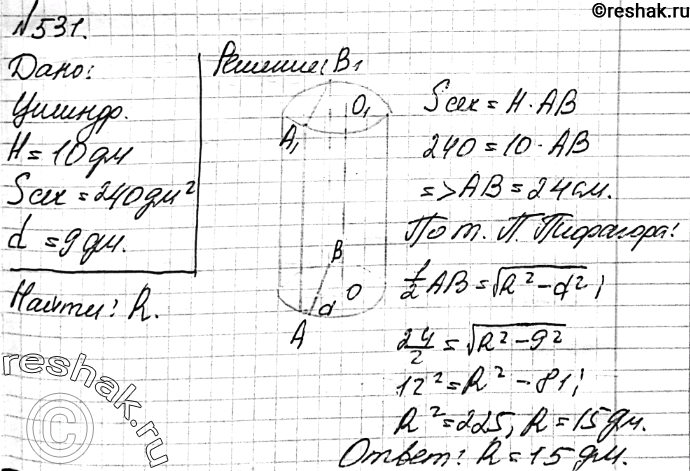 ©reshak.ru
№531.
Дано:
Цилиндр.
H = 10 дм
Sсеч = 240 дм²
d = 9 дм.
Найти: R.
Решение:
B₁
O₁
A₁
B
O
d
A
Sсеч = H · AB
240 = 10 · AB
=> AB = 24 см.
По т. П. Пифагора:
1/2 AB = √R² - d² ;
24/2 = √R² - 9²
12² = R² - 81;
R² = 225, R = 15 дм.
Ответ: R = 15 дм.
©reshak.ru